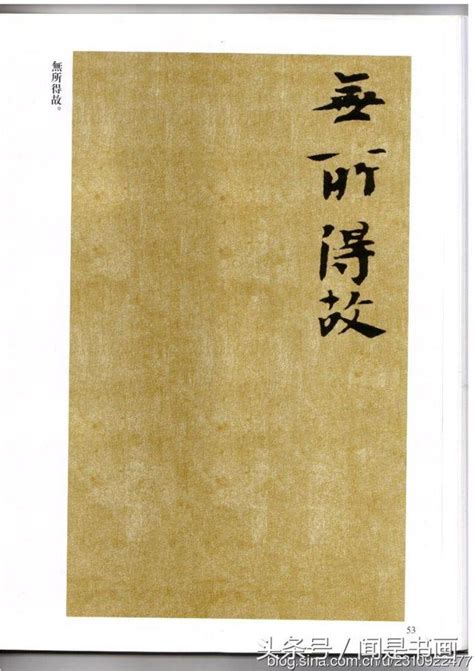 無所得故
無所得故。
53
头条号／闻是书画
blog.sina.com.cn/u/2310922477